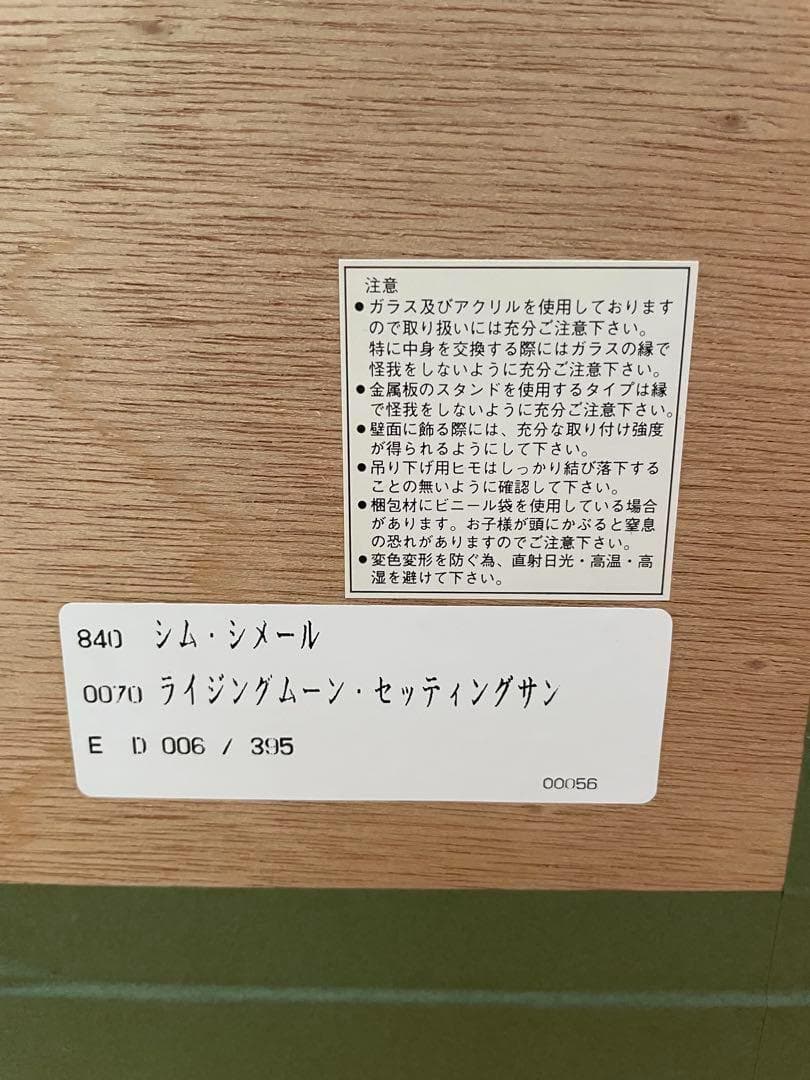 注意
●ガラス及びアクリルを使用しております
ので取り扱いには充分ご注意下さい。
特に中身を交換する際にはガラスの縁で
怪我をしないように充分ご注意下さい。
●金属板のスタンドを使用するタイプは縁
で怪我をしないように充分ご注意下さい。
●壁面に飾る際には、充分な取り付け強度
が得られるようにして下さい。
●吊り下げ用ヒモはしっかり結び落下する
ことの無いように確認して下さい。
●梱包材にビニール袋を使用している場合
があります。お子様が頭にかぶると窒息
の恐れがありますのでご注意下さい。
●変色変形を防ぐ為、直射日光・高温・高
湿を避けて下さい。
840 シム・シメール
0070 ライジングムーン・セッティングサン
E D 006 / 395
00056